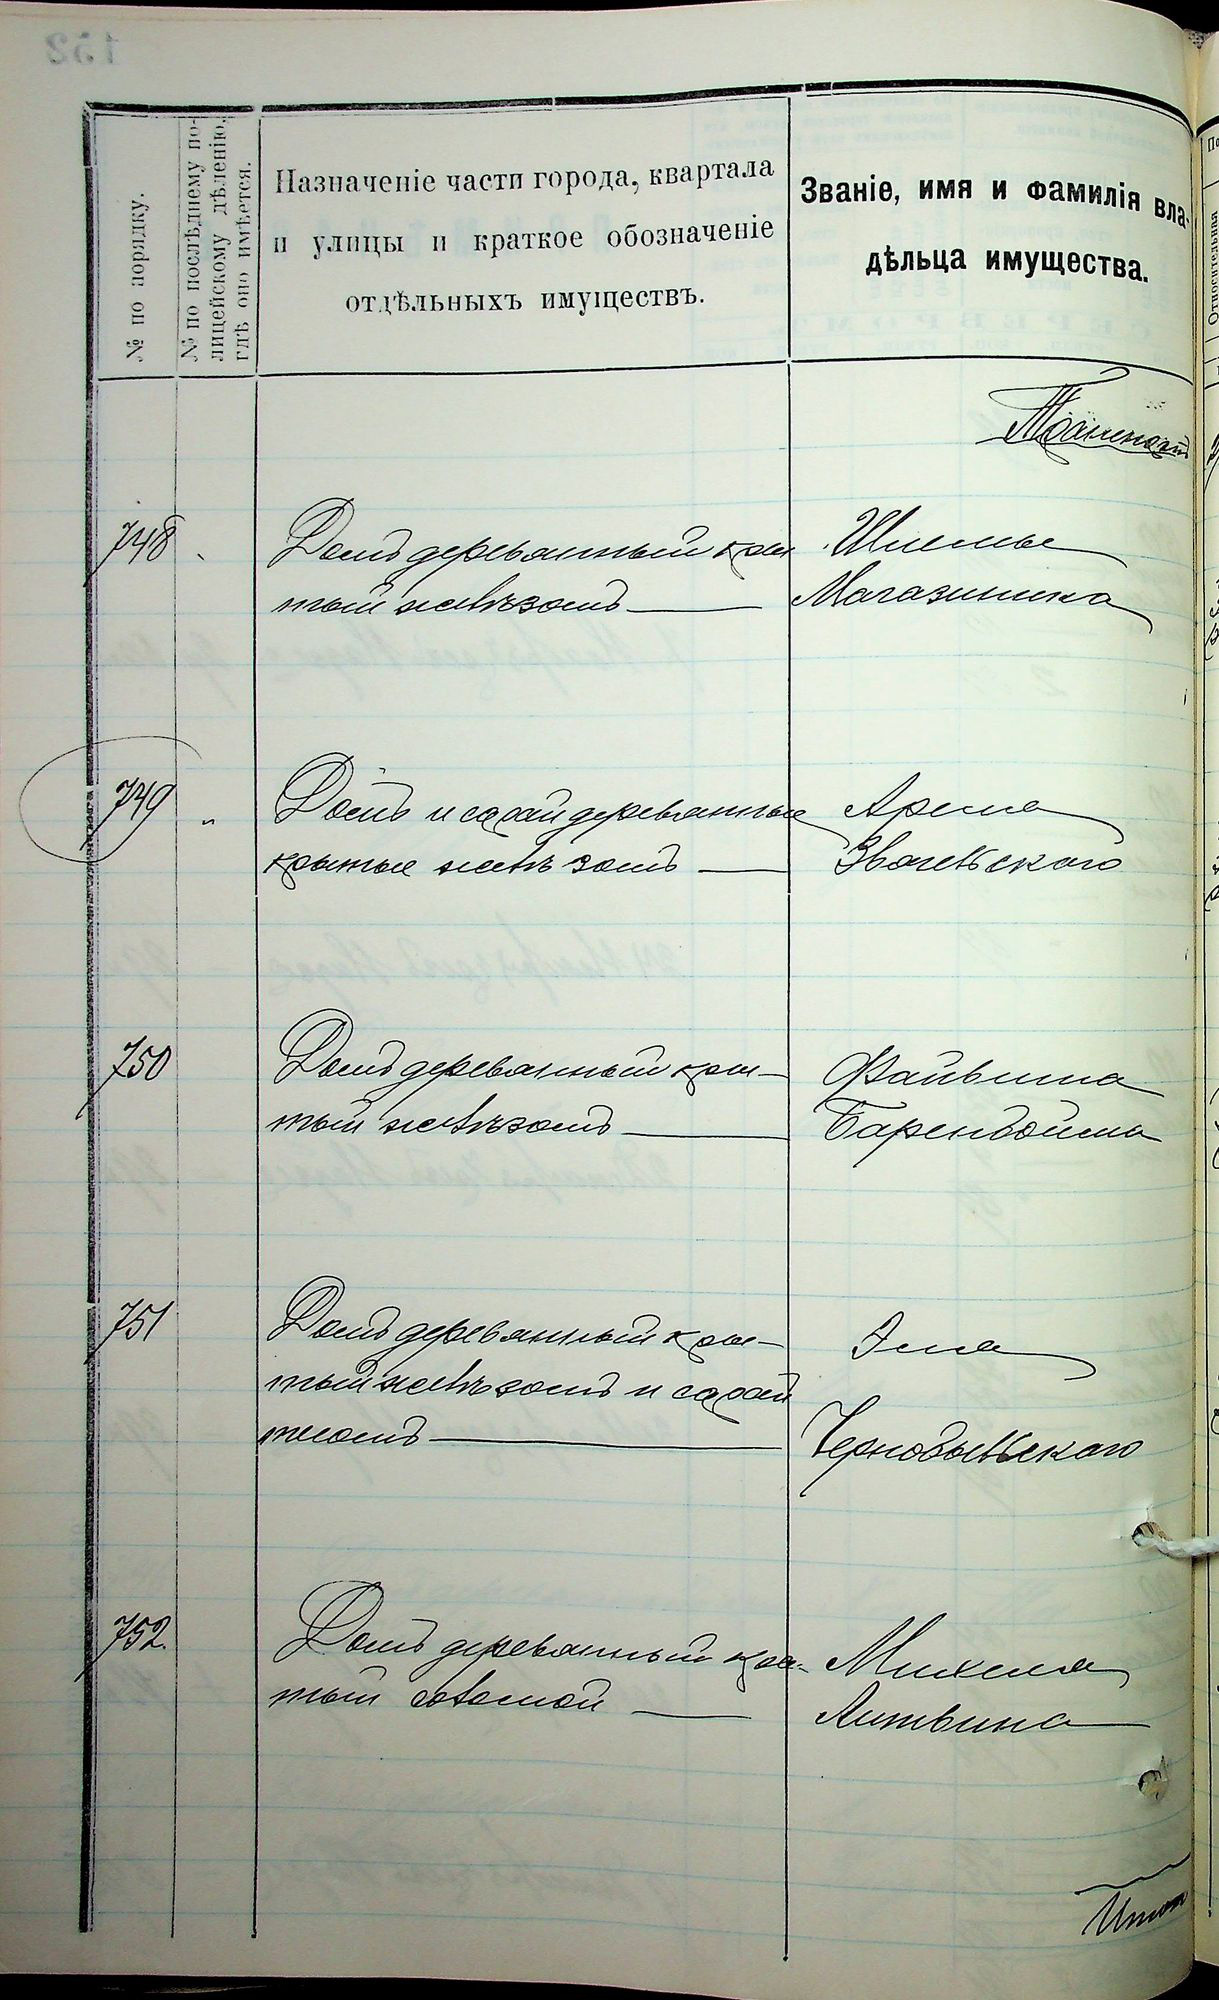 № по порядку.
№ по послѣднему по-
лицейскому дѣленію,
гдѣ оно имѣется.
Назначеніе части города, квартала
и улицы и краткое обозначеніе
отдѣльныхъ имуществъ.
Званіе, имя и фамилія вла-
дѣльца имущества.
748
Домъ деревянный кры
тый желѣзомъ
Шлемы
Магазинника
749 "
Домъ и сарай деревянные
крытые желѣзомъ
Арона
Звагельского
750
Домъ деревянный кры-
тый желѣзомъ
Файвиша
Баренбойма
751
Домъ деревянный кры-
тый желѣзомъ и сарай
тесомъ
Эля
Чернобыльского
752.
Домъ деревянный кры-
тый соломой
Михеля
Литвина